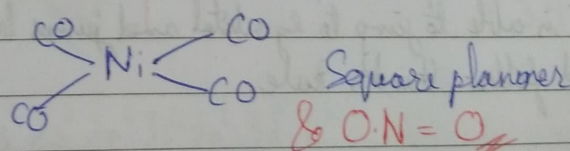 CO CO
Ni
CO CO Square planner
& O.N = O